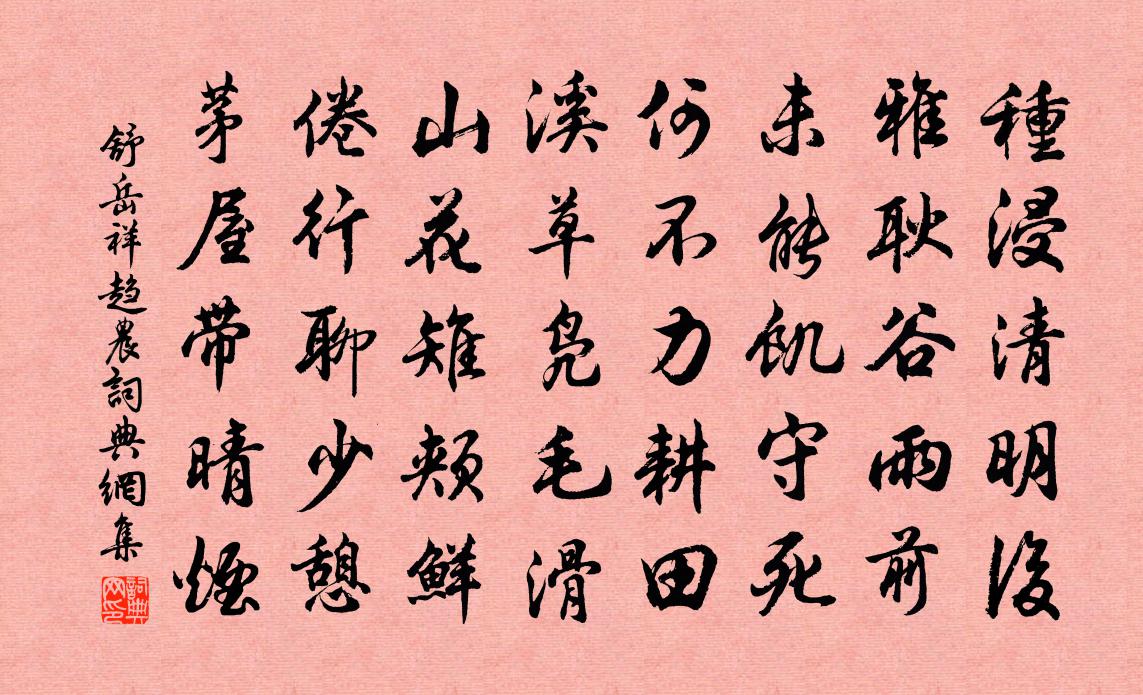 種浸清明後
雅耿谷雨前
未能飢守死
何不力耕田
溪草鳧毛滑
山花雉頰鮮
倦行聊少憩
茅屋帶晴煙
舒岳祥趨農詞典網集
詞典網印